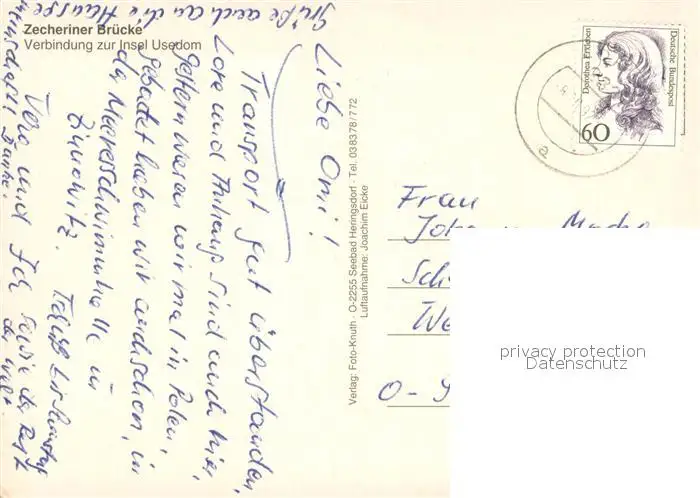 Zecheriner Brücke
Verbindung zur Insel Usedom
Grüße auch an die
Liebe Omi!
Transport gut überstanden,
Lore und sind auch hier,
gestern waren wir mal in Polen,
gebadet haben wir auch schon, in
der Meeresschwimmhalle in
Zinnowitz.
Vera und Ich sowie der Rest
der Welt.
Danke.
Verlag: Foto-Knuth · O-2255 Seebad Heringsdorf · Tel. 038378/772
Luftaufnahme: Joachim Eicke
Dorothea Erxleben
Deutsche Bundespost
60
a
Frau
Joh
Sch
We
O-
privacy protection
Datenschutz